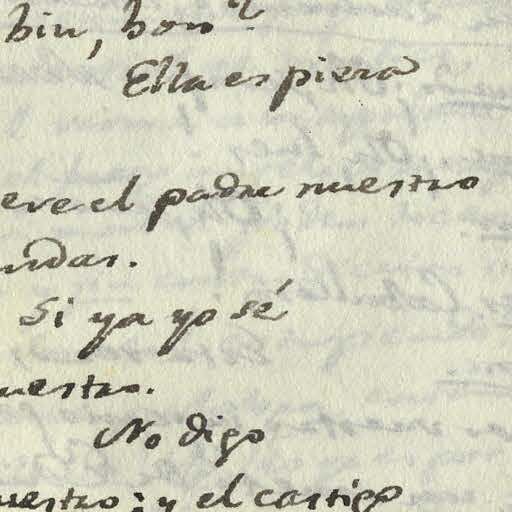 bin, bon
Ella es piera
eve el padre nuestro
ndas.
Si ya yo sé
uestro.
No digo
uestro; y el castigo